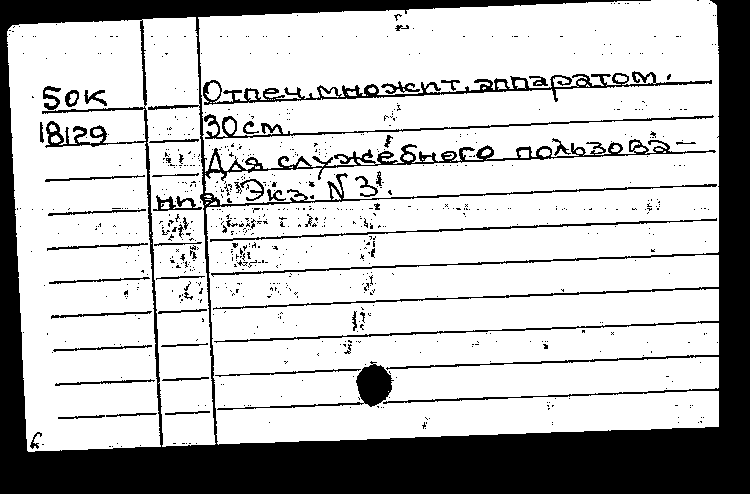 50К Отпеч. множит. аппаратом.
18129 30 см.
Для служебного пользова-
ния. Экз: N 3.